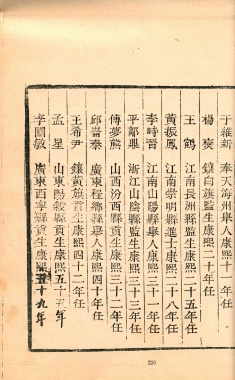 于維新 奉天海州舉人康熙十一年任
楊燮 鑲白旗監生康熙二十年任
王鶴 江南長洲縣監生康熙二十五年任
黃振鳳 江南崇明縣進士康熙二十八年任
李時晉 江南山陽縣舉人康熙三十一年任
平鄗鼎 浙江山陰縣監生康熙三十三年任
傅夢熊 山西汾西縣貢生康熙三十二年任
邱嵛泰 廣東程鄉縣舉人康熙四十年任
王希尹 鑲黃旗廕生康熙四十二年任
孟星 山東陽穀縣貢生康熙五十三年
李國敏 廣東西寧縣貢生康熙五十九年
226